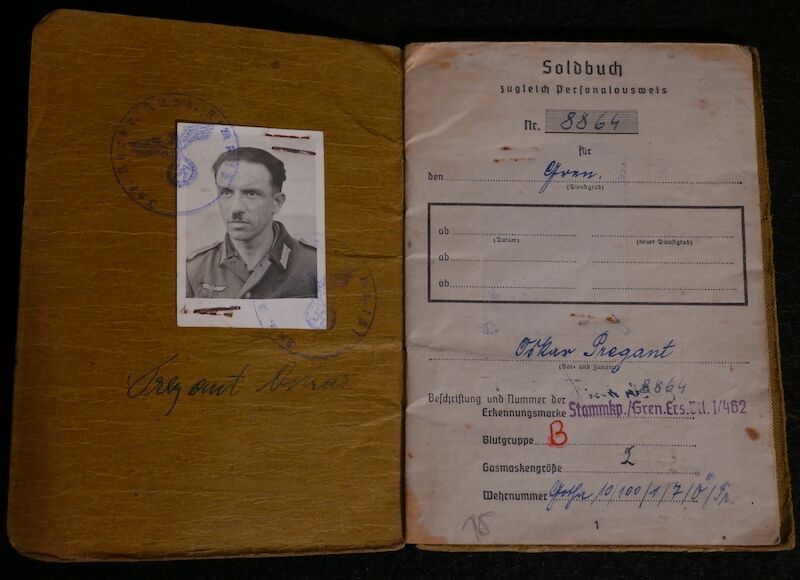 Pregant Oskar
Soldbuch
zugleich Personalausweis
Nr. 8864
für
den Gren.
(Dienstgrad)
ab
(Datum) (neuer Dienstgrad)
ab
ab
Oskar Pregant
(Vor- und Zuname)
8864
Beschriftung und Nummer der
Erkennungsmarke Stammkp./Gren.Ers.Btl. I/462
Blutgruppe B
Gasmaskengröße 2
Wehrnummer Gotha 10/100/1/7/0
1